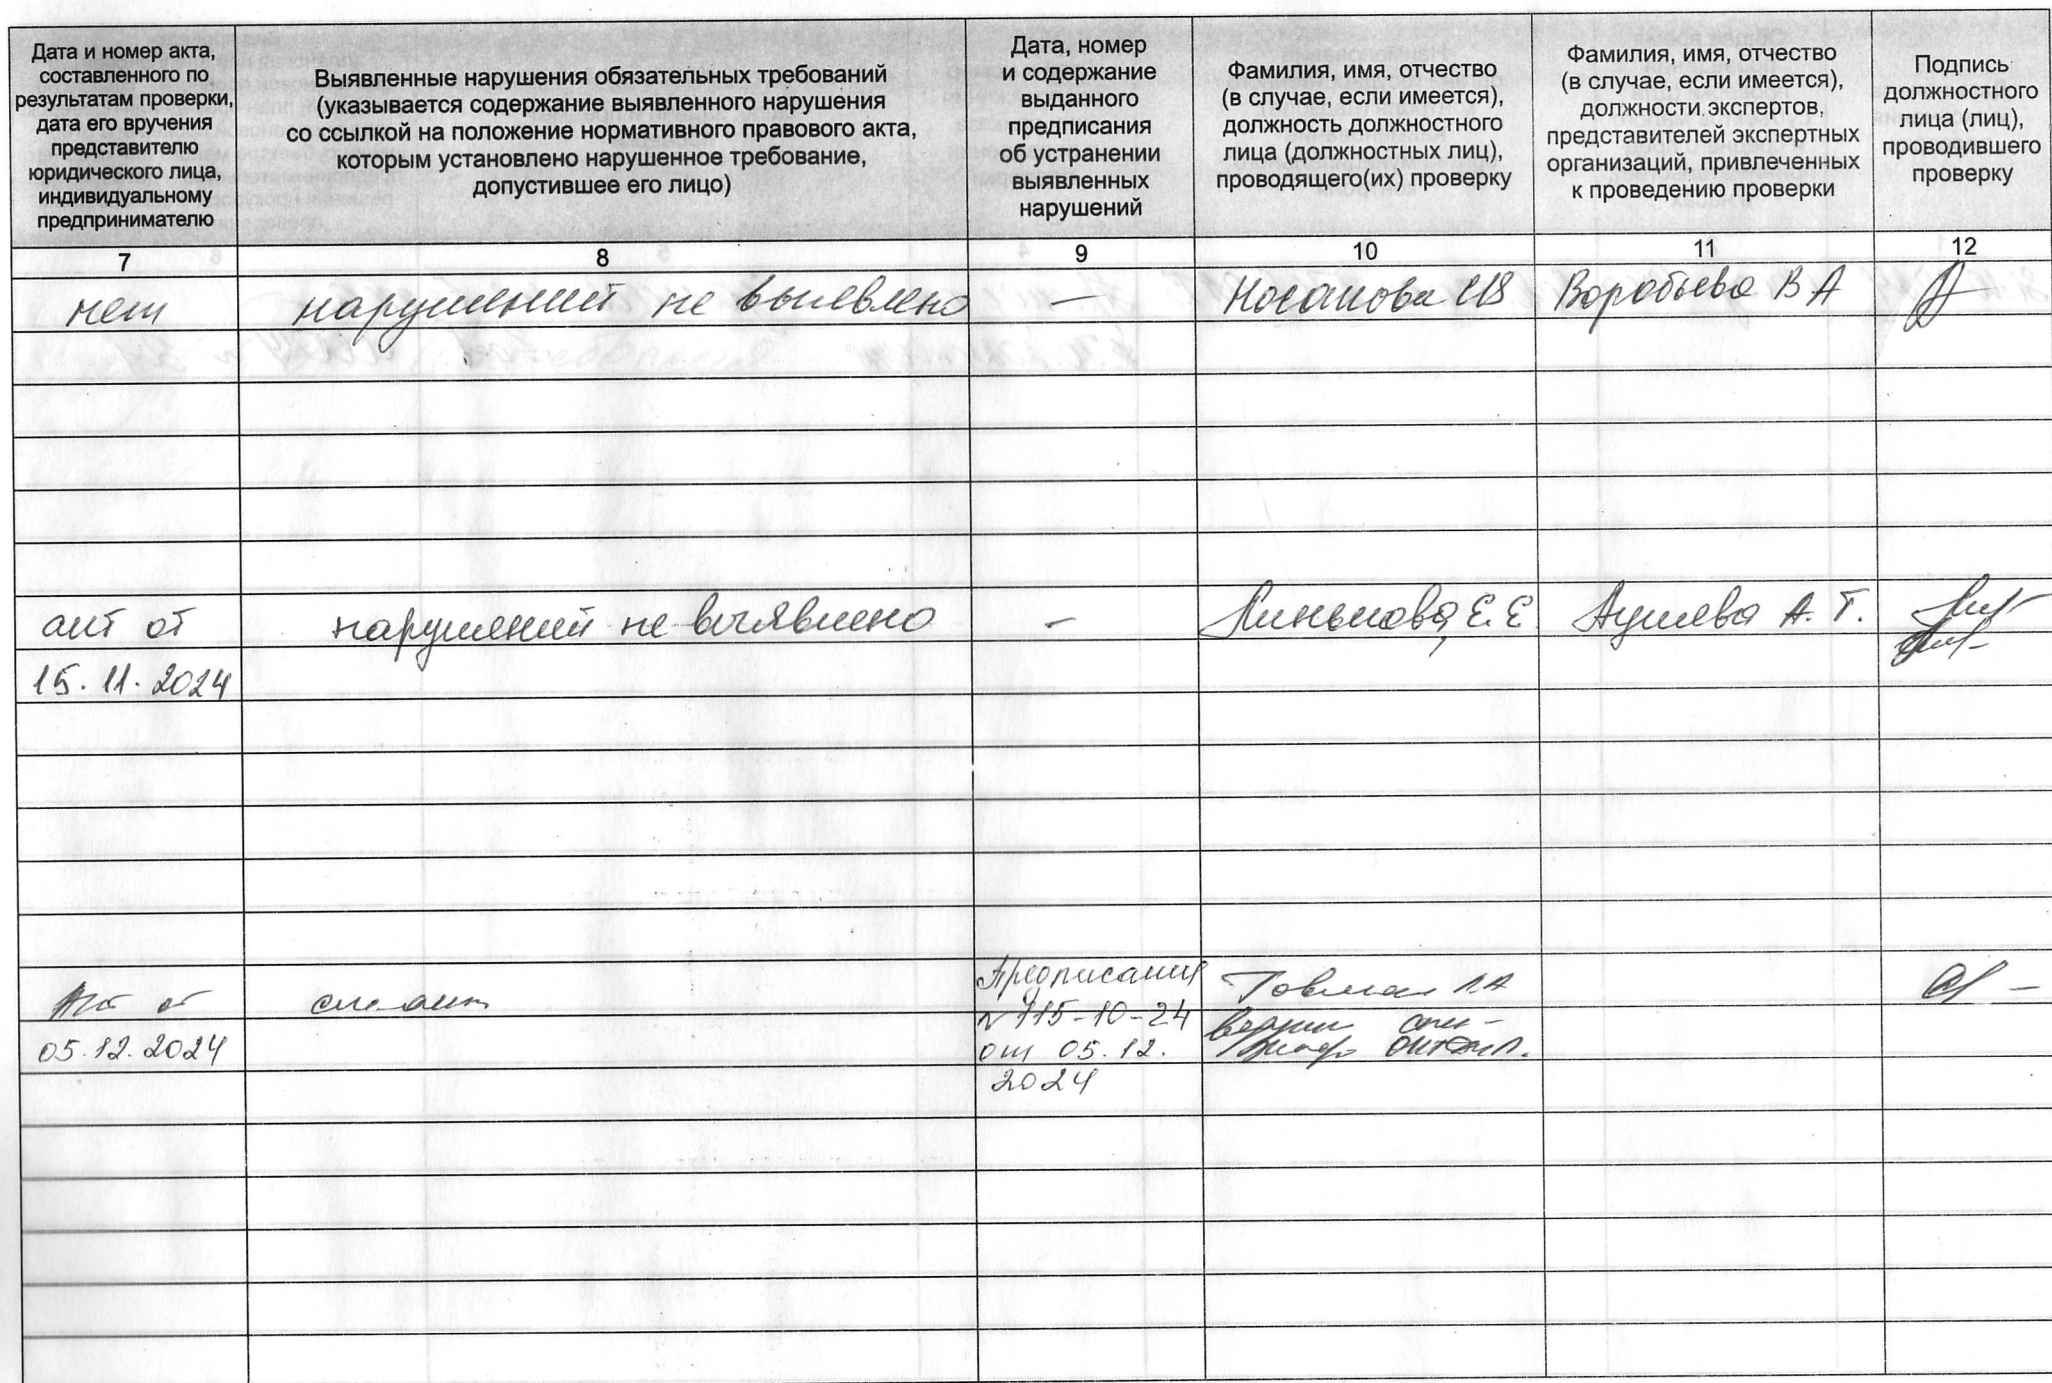 Дата и номер акта,
составленного по
результатам проверки,
дата его вручения
представителю
юридического лица,
индивидуальному
предпринимателю
Выявленные нарушения обязательных требований
(указывается содержание выявленного нарушения
со ссылкой на положение нормативного правового акта,
которым установлено нарушенное требование,
допустившее его лицо)
Дата, номер
и содержание
выданного
предписания
об устранении
выявленных
нарушений
Фамилия, имя, отчество
(в случае, если имеется),
должность должностного
лица (должностных лиц),
проводящего(их) проверку
Фамилия, имя, отчество
(в случае, если имеется),
должности экспертов,
представителей экспертных
организаций, привлеченных
к проведению проверки
Подпись
должностного
лица (лиц),
проводившего
проверку
7 8 9 10 11 12
нет нарушений не выявлено — Воробьева В А
акт от нарушений не выявлено - Е.Е А. Т.
15.11.2024
Акт от см. акт Предписание
05.12.2024 № 115-10-24
от 05.12.
2024